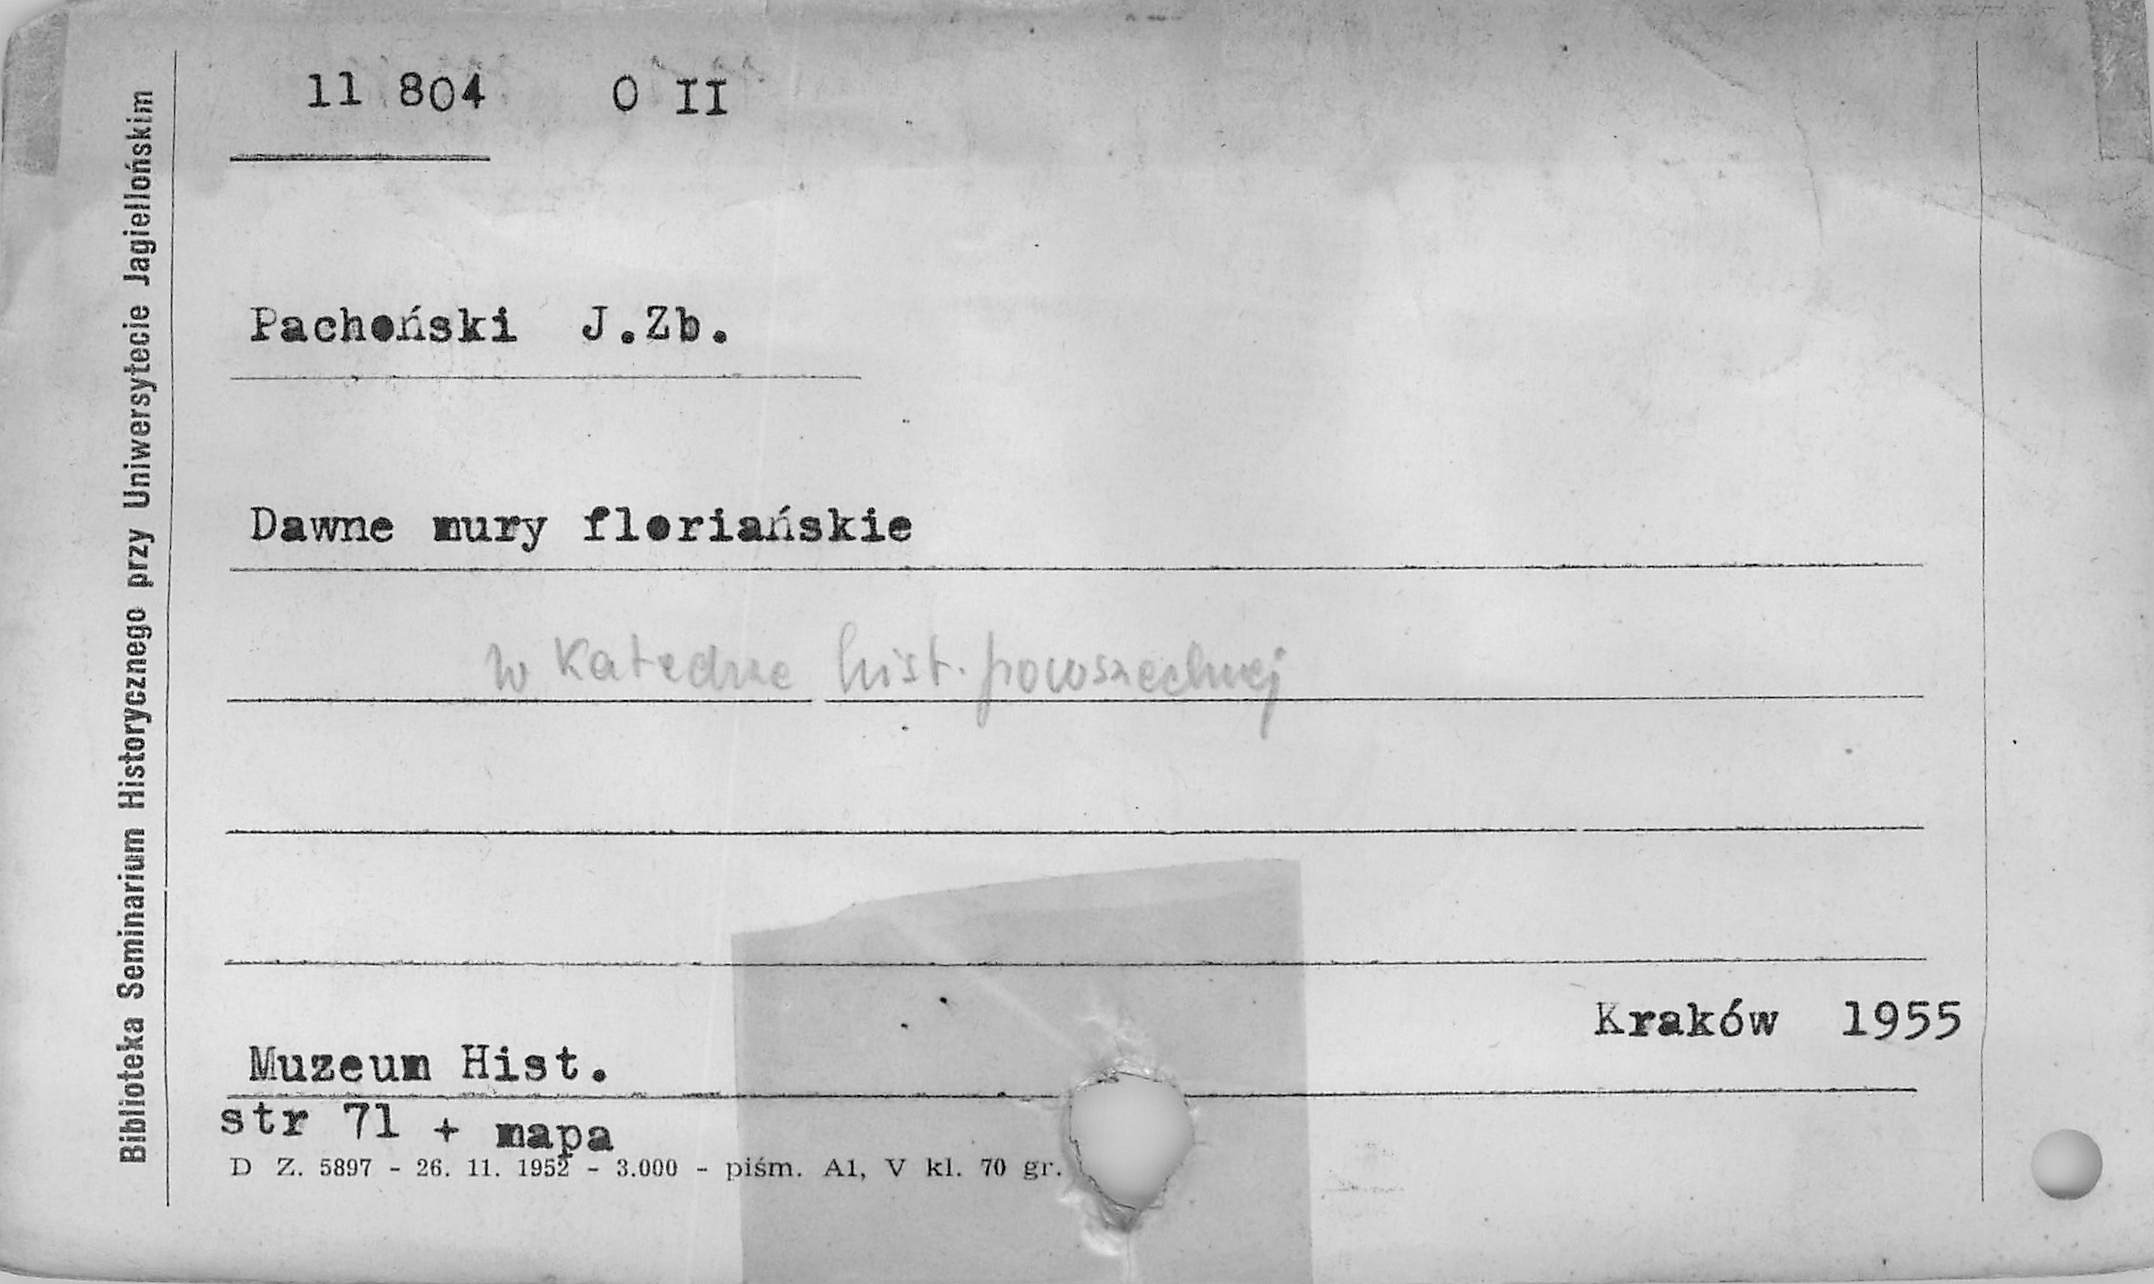 Biblioteka Seminarium Historycznego przy Uniwersytecie Jagiellońskim
11 804 O II
Pachoński J.Zb.
Dawne mury floriańskie
w Katedrze hist. powszechnej
Kraków 1955
Muzeum Hist.
str 71 + mapa
D Z. 5897 - 26. 11. 1952 - 3.000 - piśm. A1, V kl. 70 gr.